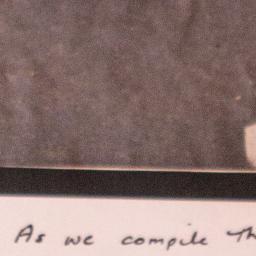 As we compile Th